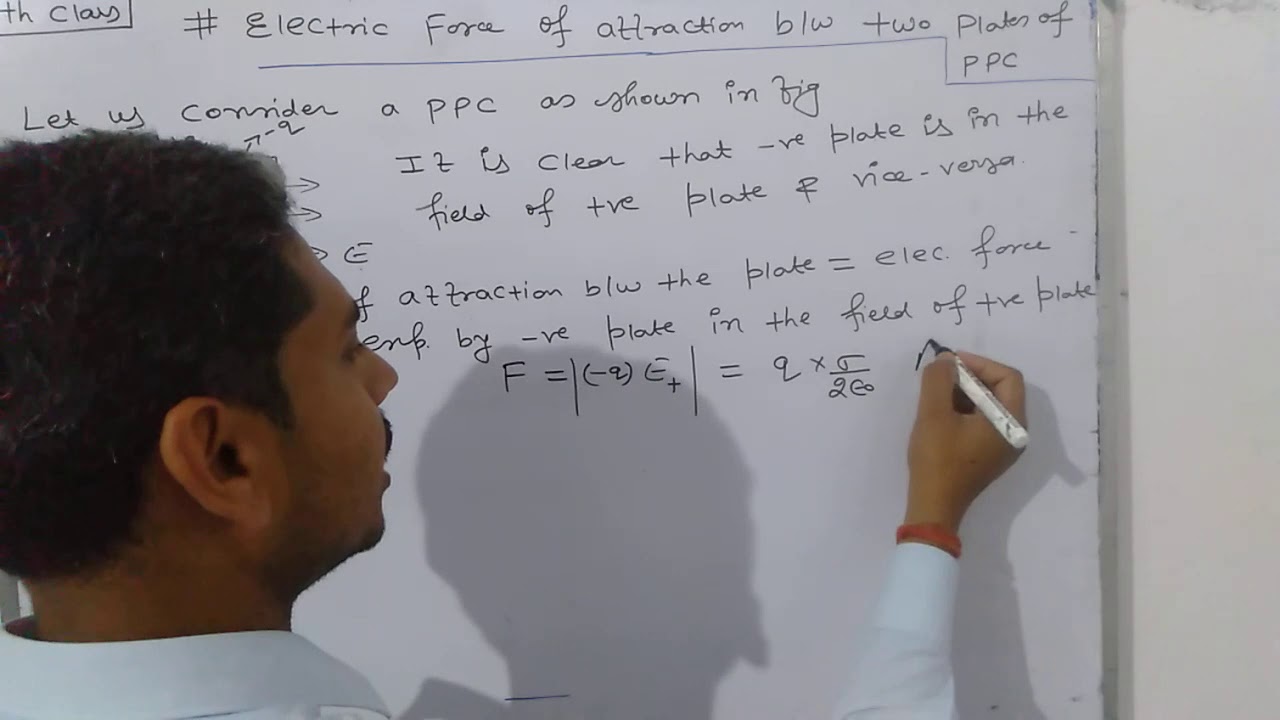 th Class
# Electric Force of attraction b/w two Plates of
PPC
Let us consider a PPC as shown in fig
-q
It is clear that -ve plate is in the
field of +ve plate & vice-versa.
E
of attraction b/w the plate = elec. force
exp. by -ve plate in the field of +ve plate
F = |(-q) E₊| = q × σ/2ε₀